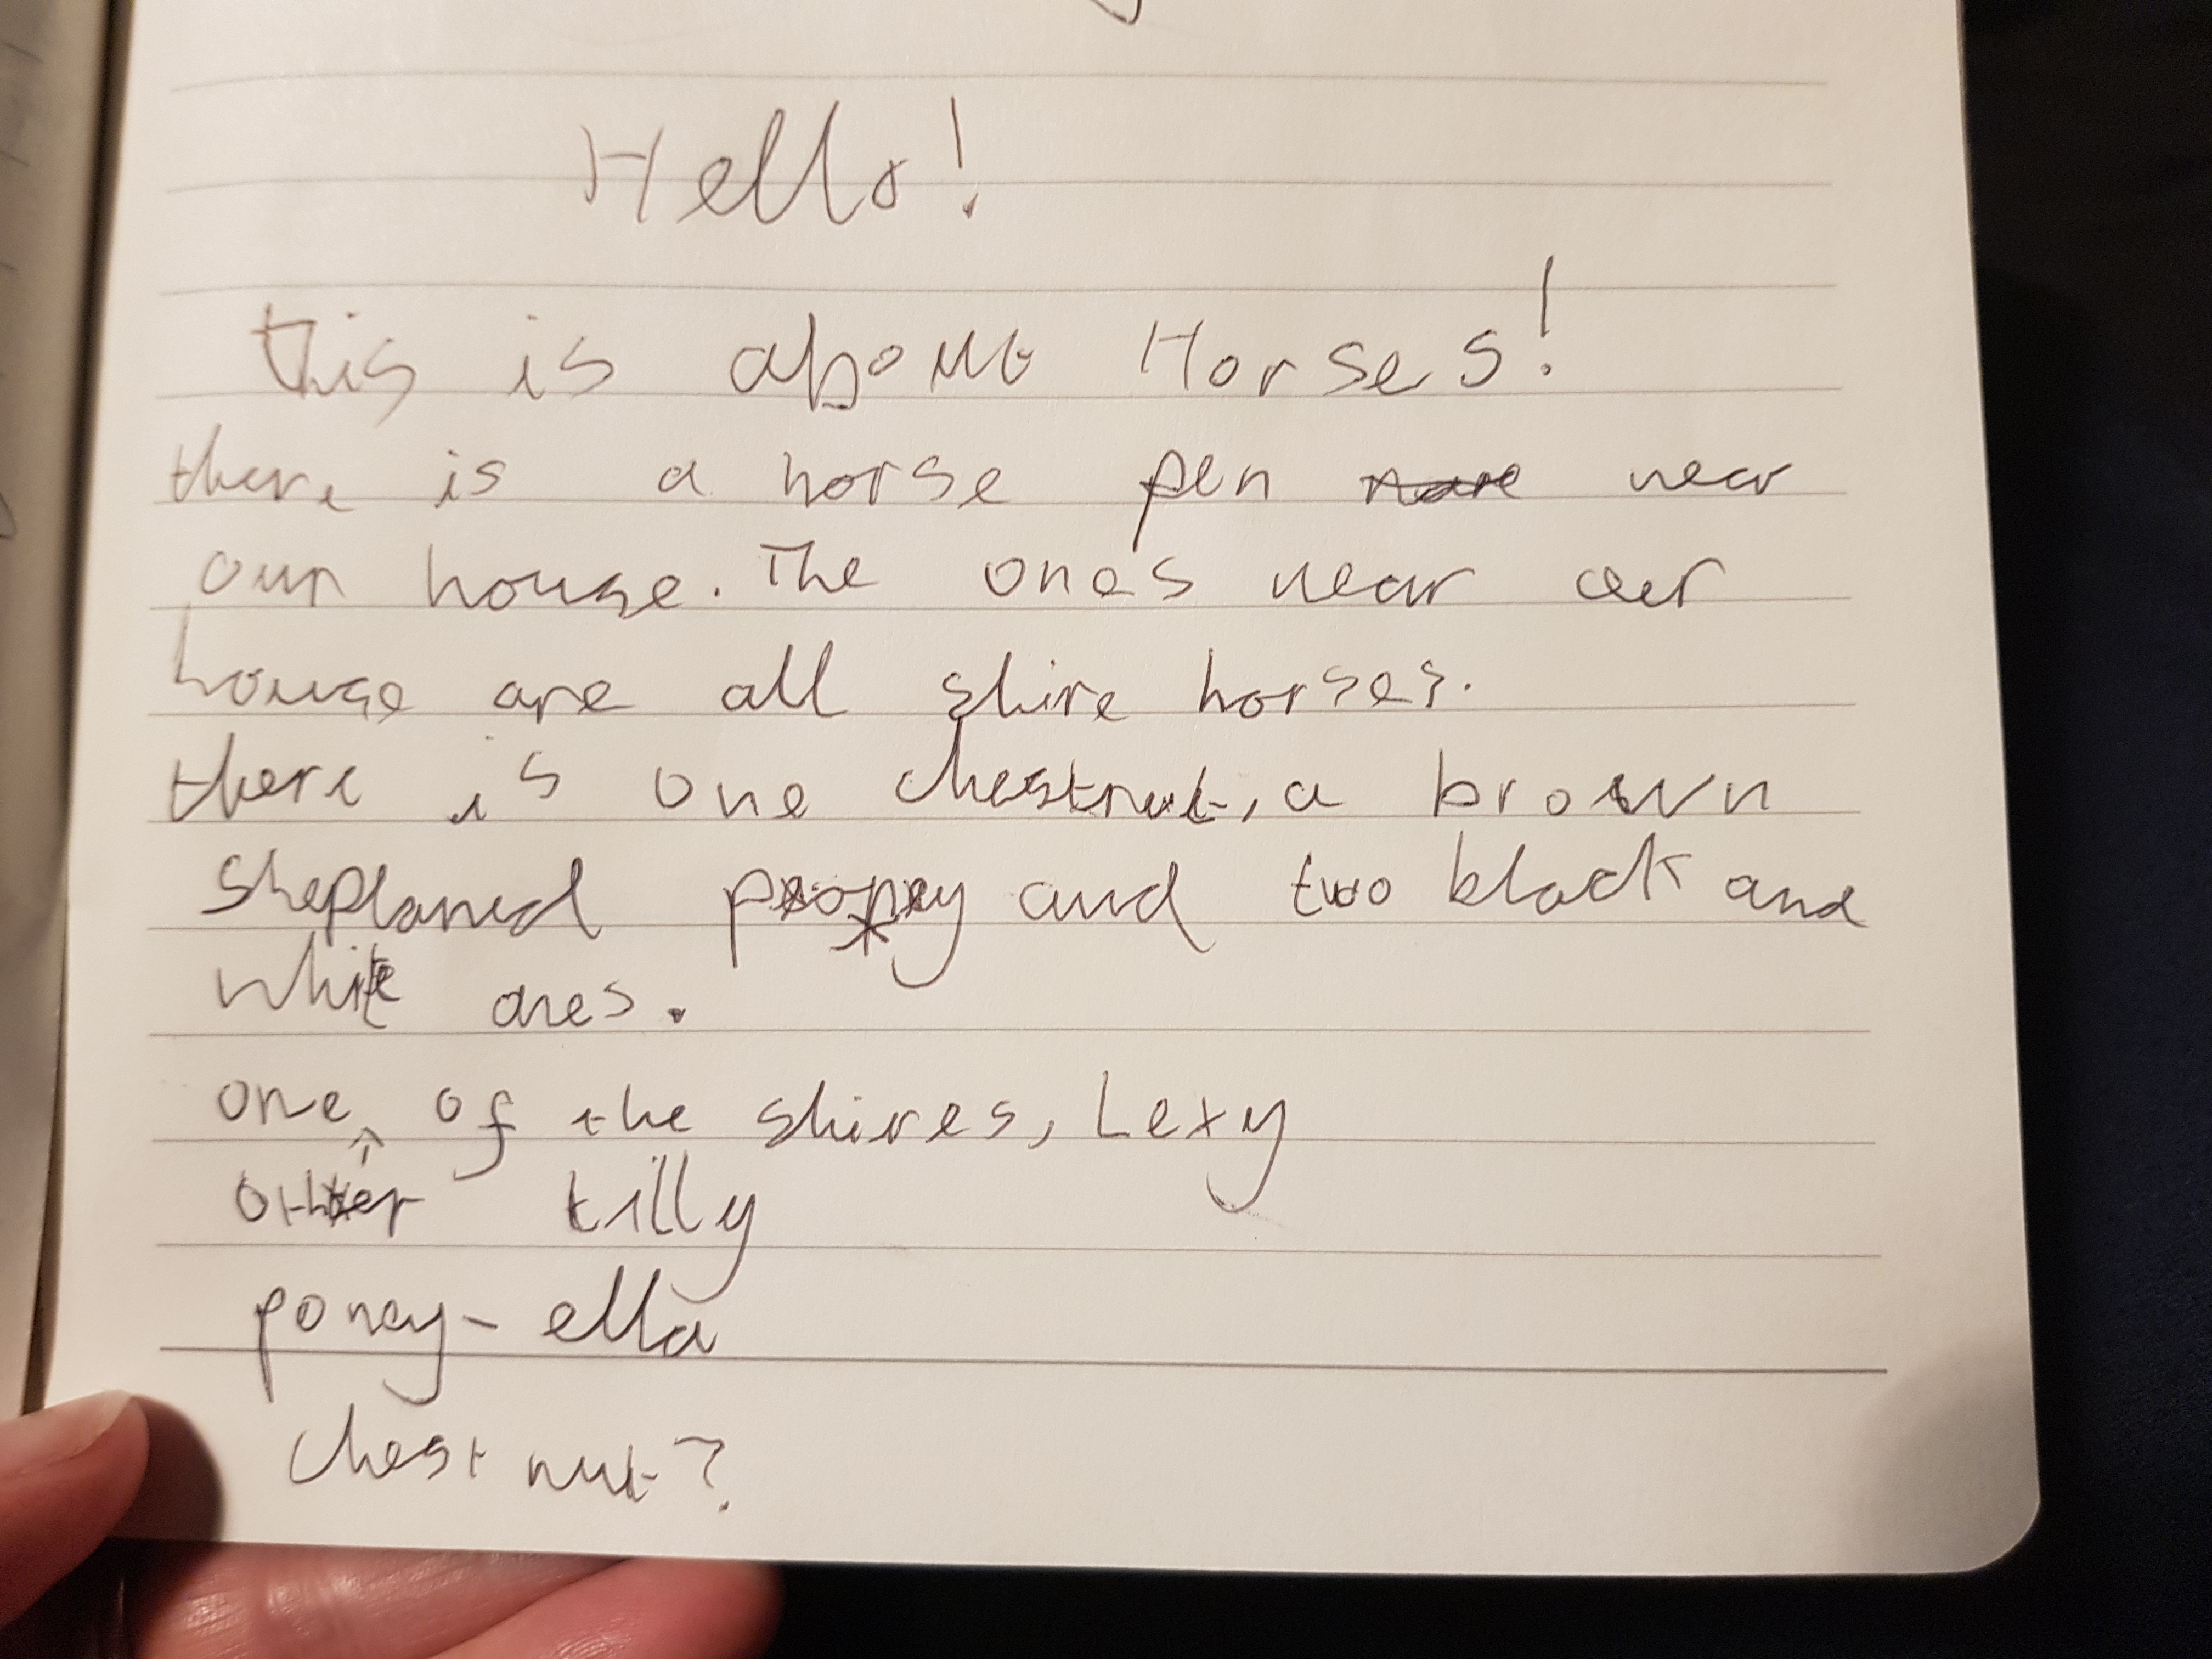 Hello!
this is about Horses!
there is a horse pen near
our house. The ones near our
house are all shire horses.
there is one chestnut, a brown
sheplaned and two black and
white ones.
one of the shires, Lexy
other tilly
poney - ella
chestnut?